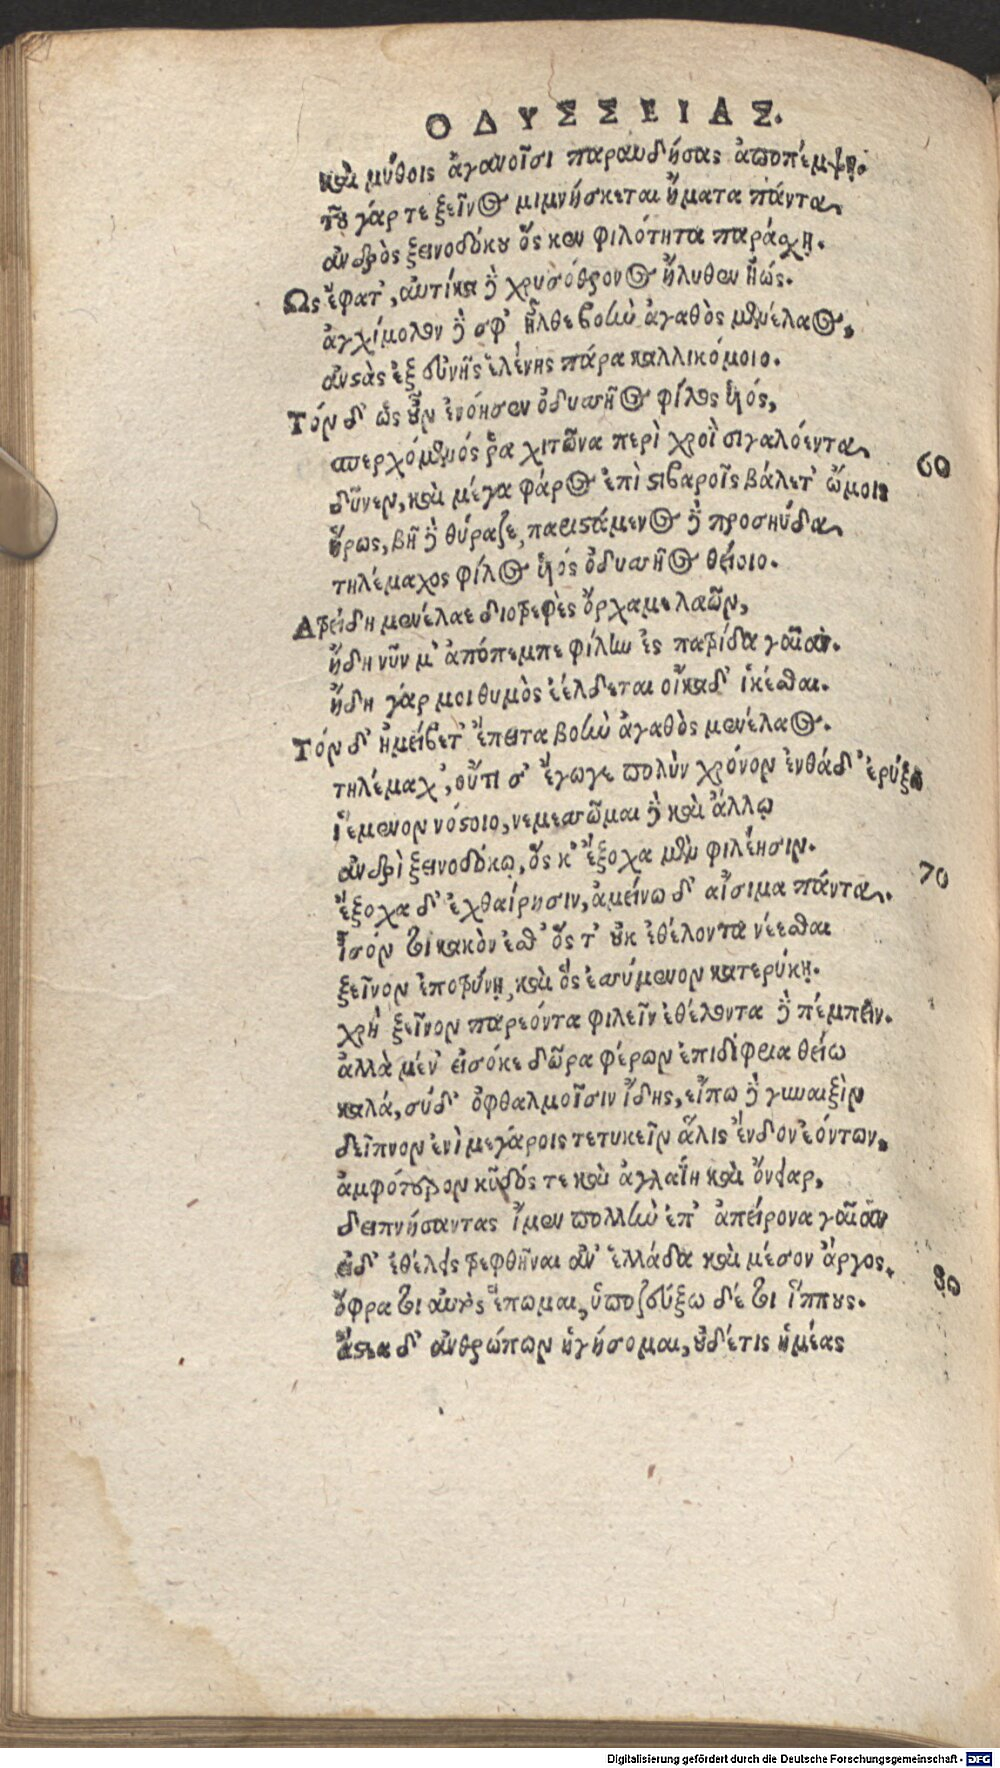 ΟΔΥΣΣΕΙΑΣ.
καὶ μύθοις ἀγανοῖσι παραυδήσας ἀποπέμψῃ.
τοῦ γάρ τε ξεῖνος μιμνήσκεται ἤματα πάντα
ἀνδρὸς ξεινοδόκου ὅς κεν φιλότητα παράσχῃ.
Ως ἔφατ', αὐτίκα δὲ χρυσόθρονος ἤλυθεν ἠώς.
ἀγχίμολον δέ σφ' ἦλθε βοὴν ἀγαθὸς μενέλαος,
ἀνστὰς ἐξ εὐνῆς ἑλένης πάρα καλλικόμοιο.
Τὸν δ' ὡς οὖν ἐνόησεν ὀδυσσῆος φίλος υἱός,
σπερχόμενός ῥα χιτῶνα περὶ χροῒ σιγαλόεντα 60
δῦνεν, καὶ μέγα φάρος ἐπὶ στιβαροῖς βάλετ' ὤμοις
ἥρως, βῆ δὲ θύραζε, παριστάμενος δὲ προσηύδα
τηλέμαχος φίλος υἱός ὀδυσσῆος θείοιο.
Ατρείδη μενέλαε διοτρεφὲς ὄρχαμε λαῶν,
ἤδη νῦν μ' ἀπόπεμπε φίλην ἐς πατρίδα γαῖαν.
ἤδη γάρ μοι θυμὸς ἐέλδεται οἴκαδ' ἱκέσθαι.
Τὸν δ' ἠμείβετ' ἔπειτα βοὴν ἀγαθὸς μενέλαος.
τηλέμαχ', οὔτι σ' ἔγωγε πολὺν χρόνον ἐνθάδ' ἐρύξω
ἱέμενον νόστοιο, νεμεσσῶμαι δὲ καὶ ἄλλῳ
ἀνδρὶ ξεινοδόκῳ, ὅς κ' ἔξοχα μὲν φιλέησιν. 70
ἔξοχα δ' ἐχθαίρησιν, ἀμείνω δ' αἴσιμα πάντα.
ἶσόν τοι κακὸν ἐσθ' ὅς τ' οὐκ ἐθέλοντα νέεσθαι
ξεῖνον ἐποτρύνῃ, καὶ ὃς ἐσσύμενον κατερύκῃ.
χρὴ ξεῖνον παρεόντα φιλεῖν ἐθέλοντα δὲ πέμπειν.
ἀλλὰ μέν' εἰσόκε δῶρα φέρων ἐπιδίφρια θείω
καλά, σύδ' ὀφθαλμοῖσιν ἴδῃς, εἴπω δὲ γυναιξὶν
δεῖπνον ἐνὶ μεγάροις τετυκεῖν ἅλις ἔνδον ἐόντων,
ἀμφότερον κῦδός τε καὶ ἀγλαΐη καὶ ὄνειαρ,
δειπνήσαντας ἴμεν πολλὴν ἐπ' ἀπείρονα γαῖαν
εἰδ' ἐθέλεις τρεφθῆναι ἀν' ἑλλάδα καὶ μέσον ἄργος, 80
ὄφρα τοι αὐτὸς ἕπωμαι, ὑποζεύξω δέ τοι ἵππους.
ἄστεα δ' ἀνθρώπων ἡγήσομαι, οὐδέτις ἡμέας
Digitalisierung gefördert durch die Deutsche Forschungsgemeinschaft - DFG